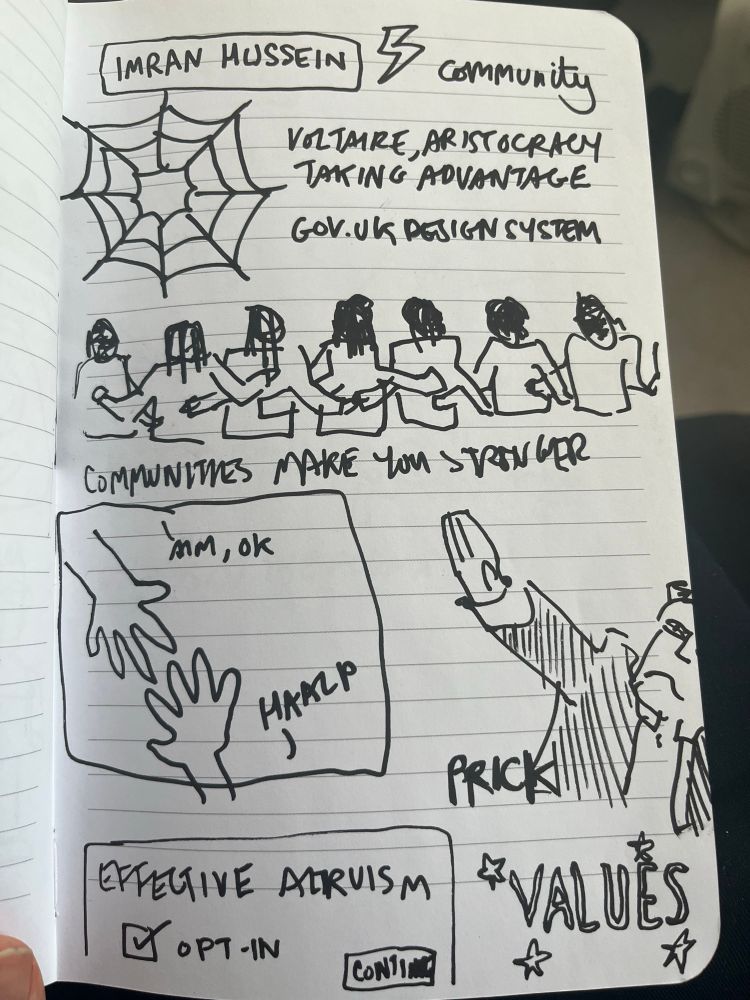 IMRAN HUSSEIN
community
VOLTAIRE, ARISTOCRACY
TAKING ADVANTAGE
GOV.UK DESIGN SYSTEM
COMMUNITIES MAKE YOU STRONGER
MM, OK
HAALP
PRICK
EFFECTIVE ALTRUISM
OPT-IN
CONTINUE
VALUES